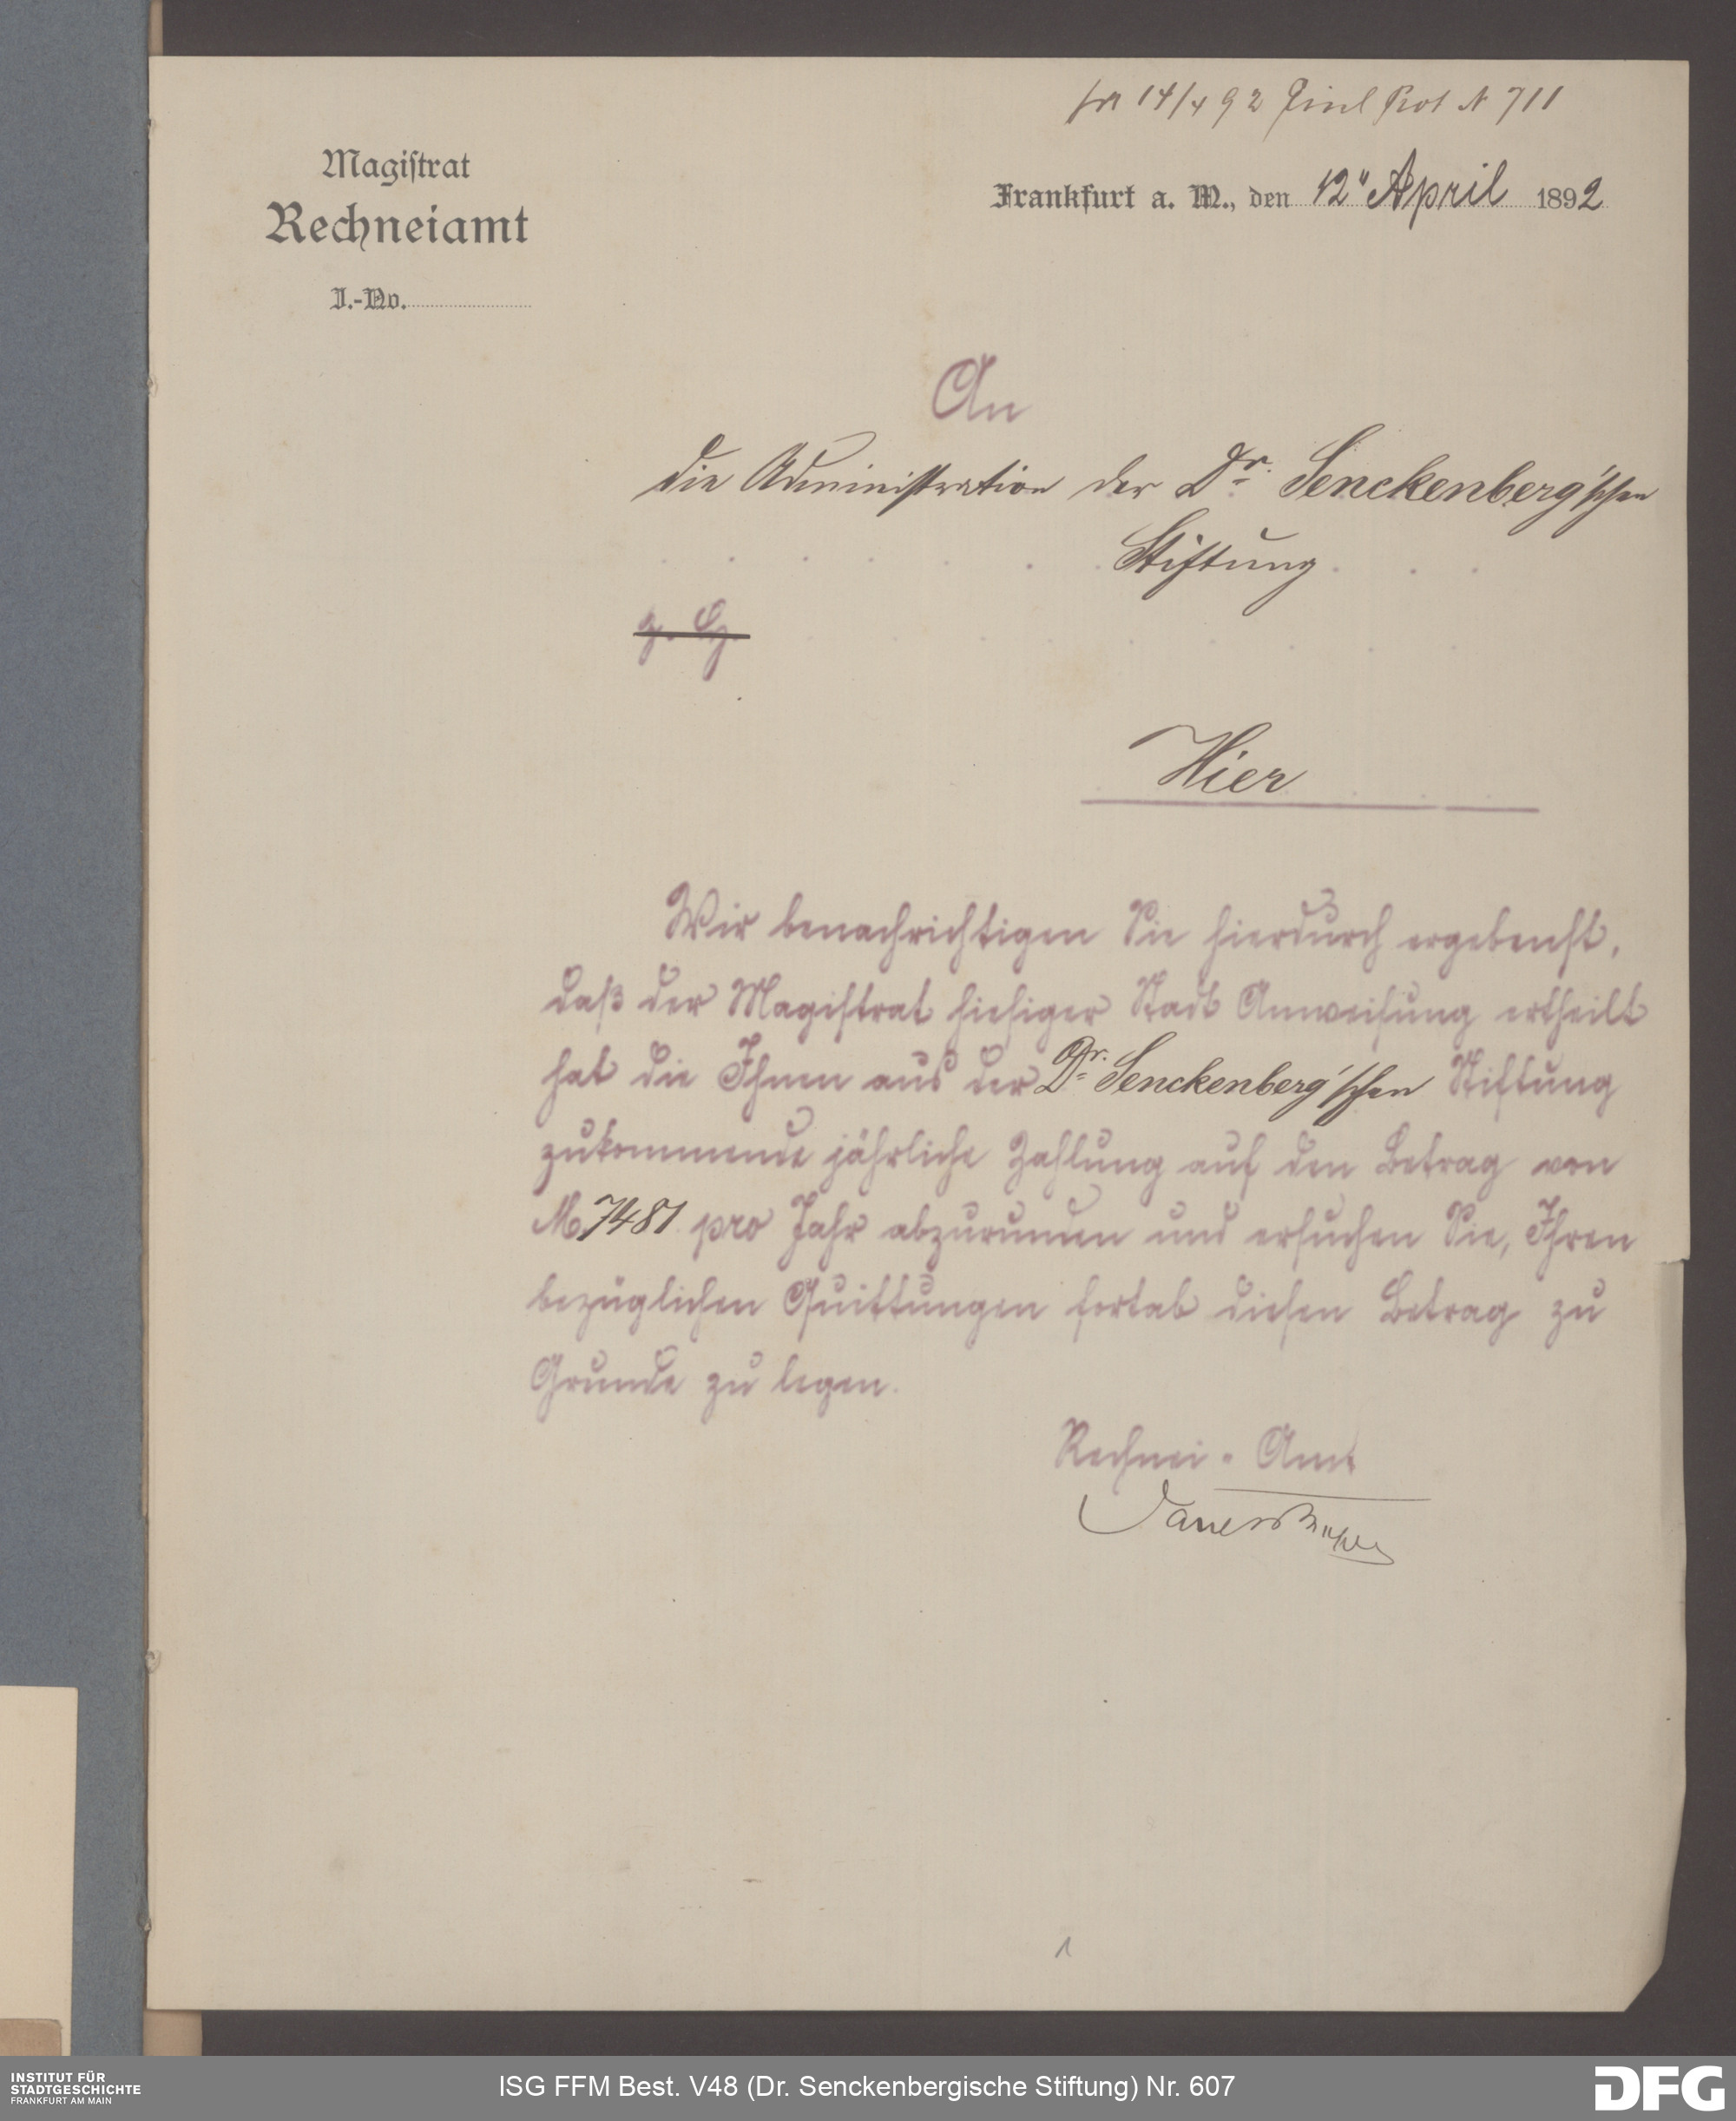 pr 14/4 92 Einl Prot N 711
Magiſtrat
Rechneiamt
J.-No.
Frankfurt a. M., den 12" April 1892
An
die Administration der Dr. Senckenberg'schen
Stiftung
z. H.
Hier
Wir benachrichtigen Sie hierdurch ergebenst,
daß der Magistrat hiesiger Stadt Anweisung ertheilt
hat die Ihnen aus der Dr. Senckenberg'schen Stiftung
zukommende jährliche Zahlung auf den Betrag von
M 7481 pro Jahr abzurunden und ersuchen Sie, Ihren
bezüglichen Quittungen fortab diesen Betrag zu
Grunde zu legen.
Rechnei-Amt
1
INSTITUT FÜR
STADTGESCHICHTE
FRANKFURT AM MAIN
ISG FFM Best. V48 (Dr. Senckenbergische Stiftung) Nr. 607
DFG